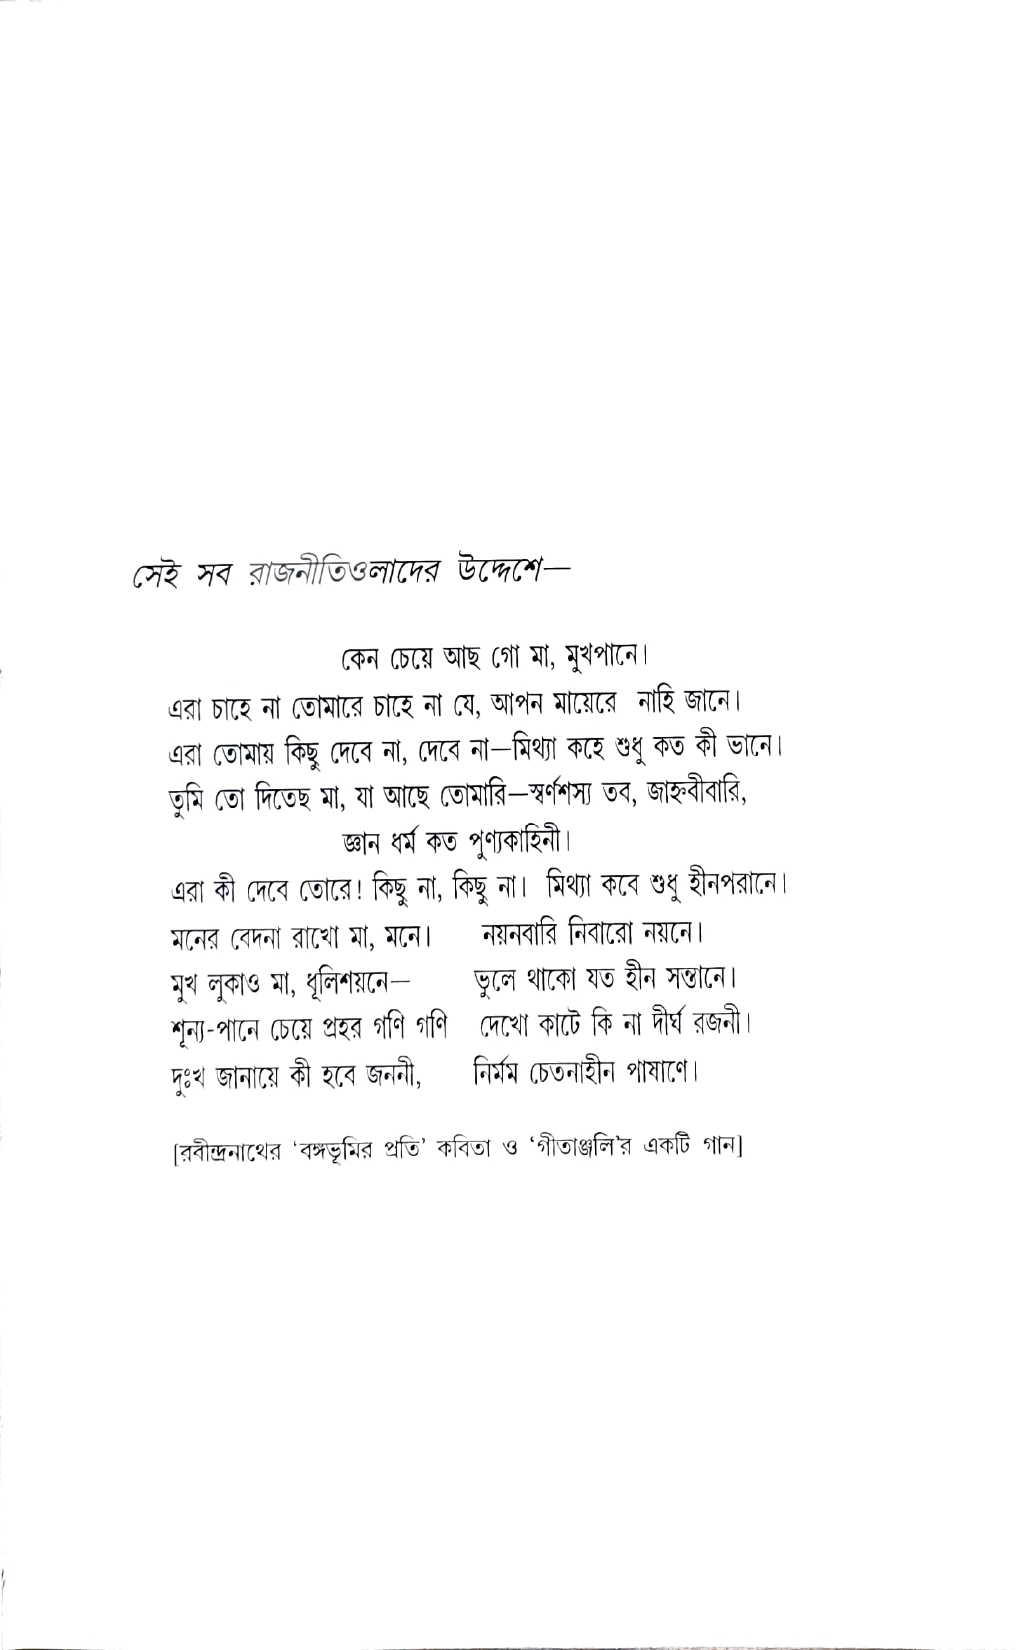 সেই সব রাজনীতিওলাদের উদ্দেশে—
কেন চেয়ে আছ গো মা, মুখপানে।
এরা চাহে না তোমারে চাহে না যে, আপন মায়েরে নাহি জানে।
এরা তোমায় কিছু দেবে না, দেবে না—মিথ্যা কহে শুধু কত কী ভানে।
তুমি তো দিতেছ মা, যা আছে তোমারি—স্বর্ণশস্য তব, জাহ্নবীবারি,
জ্ঞান ধর্ম কত পুণ্যকাহিনী।
এরা কী দেবে তোরে! কিছু না, কিছু না। মিথ্যা কবে শুধু হীনপরানে।
মনের বেদনা রাখো মা, মনে। নয়নবারি নিবারো নয়নে।
মুখ লুকাও মা, ধূলিশয়নে— ভুলে থাকো যত হীন সন্তানে।
শূন্য-পানে চেয়ে প্রহর গণি গণি দেখো কাটে কি না দীর্ঘ রজনী।
দুঃখ জানায়ে কী হবে জননী, নির্মম চেতনাহীন পাষাণে।
[রবীন্দ্রনাথের ‘বঙ্গভূমির প্রতি’ কবিতা ও ‘গীতাঞ্জলি’র একটি গান]